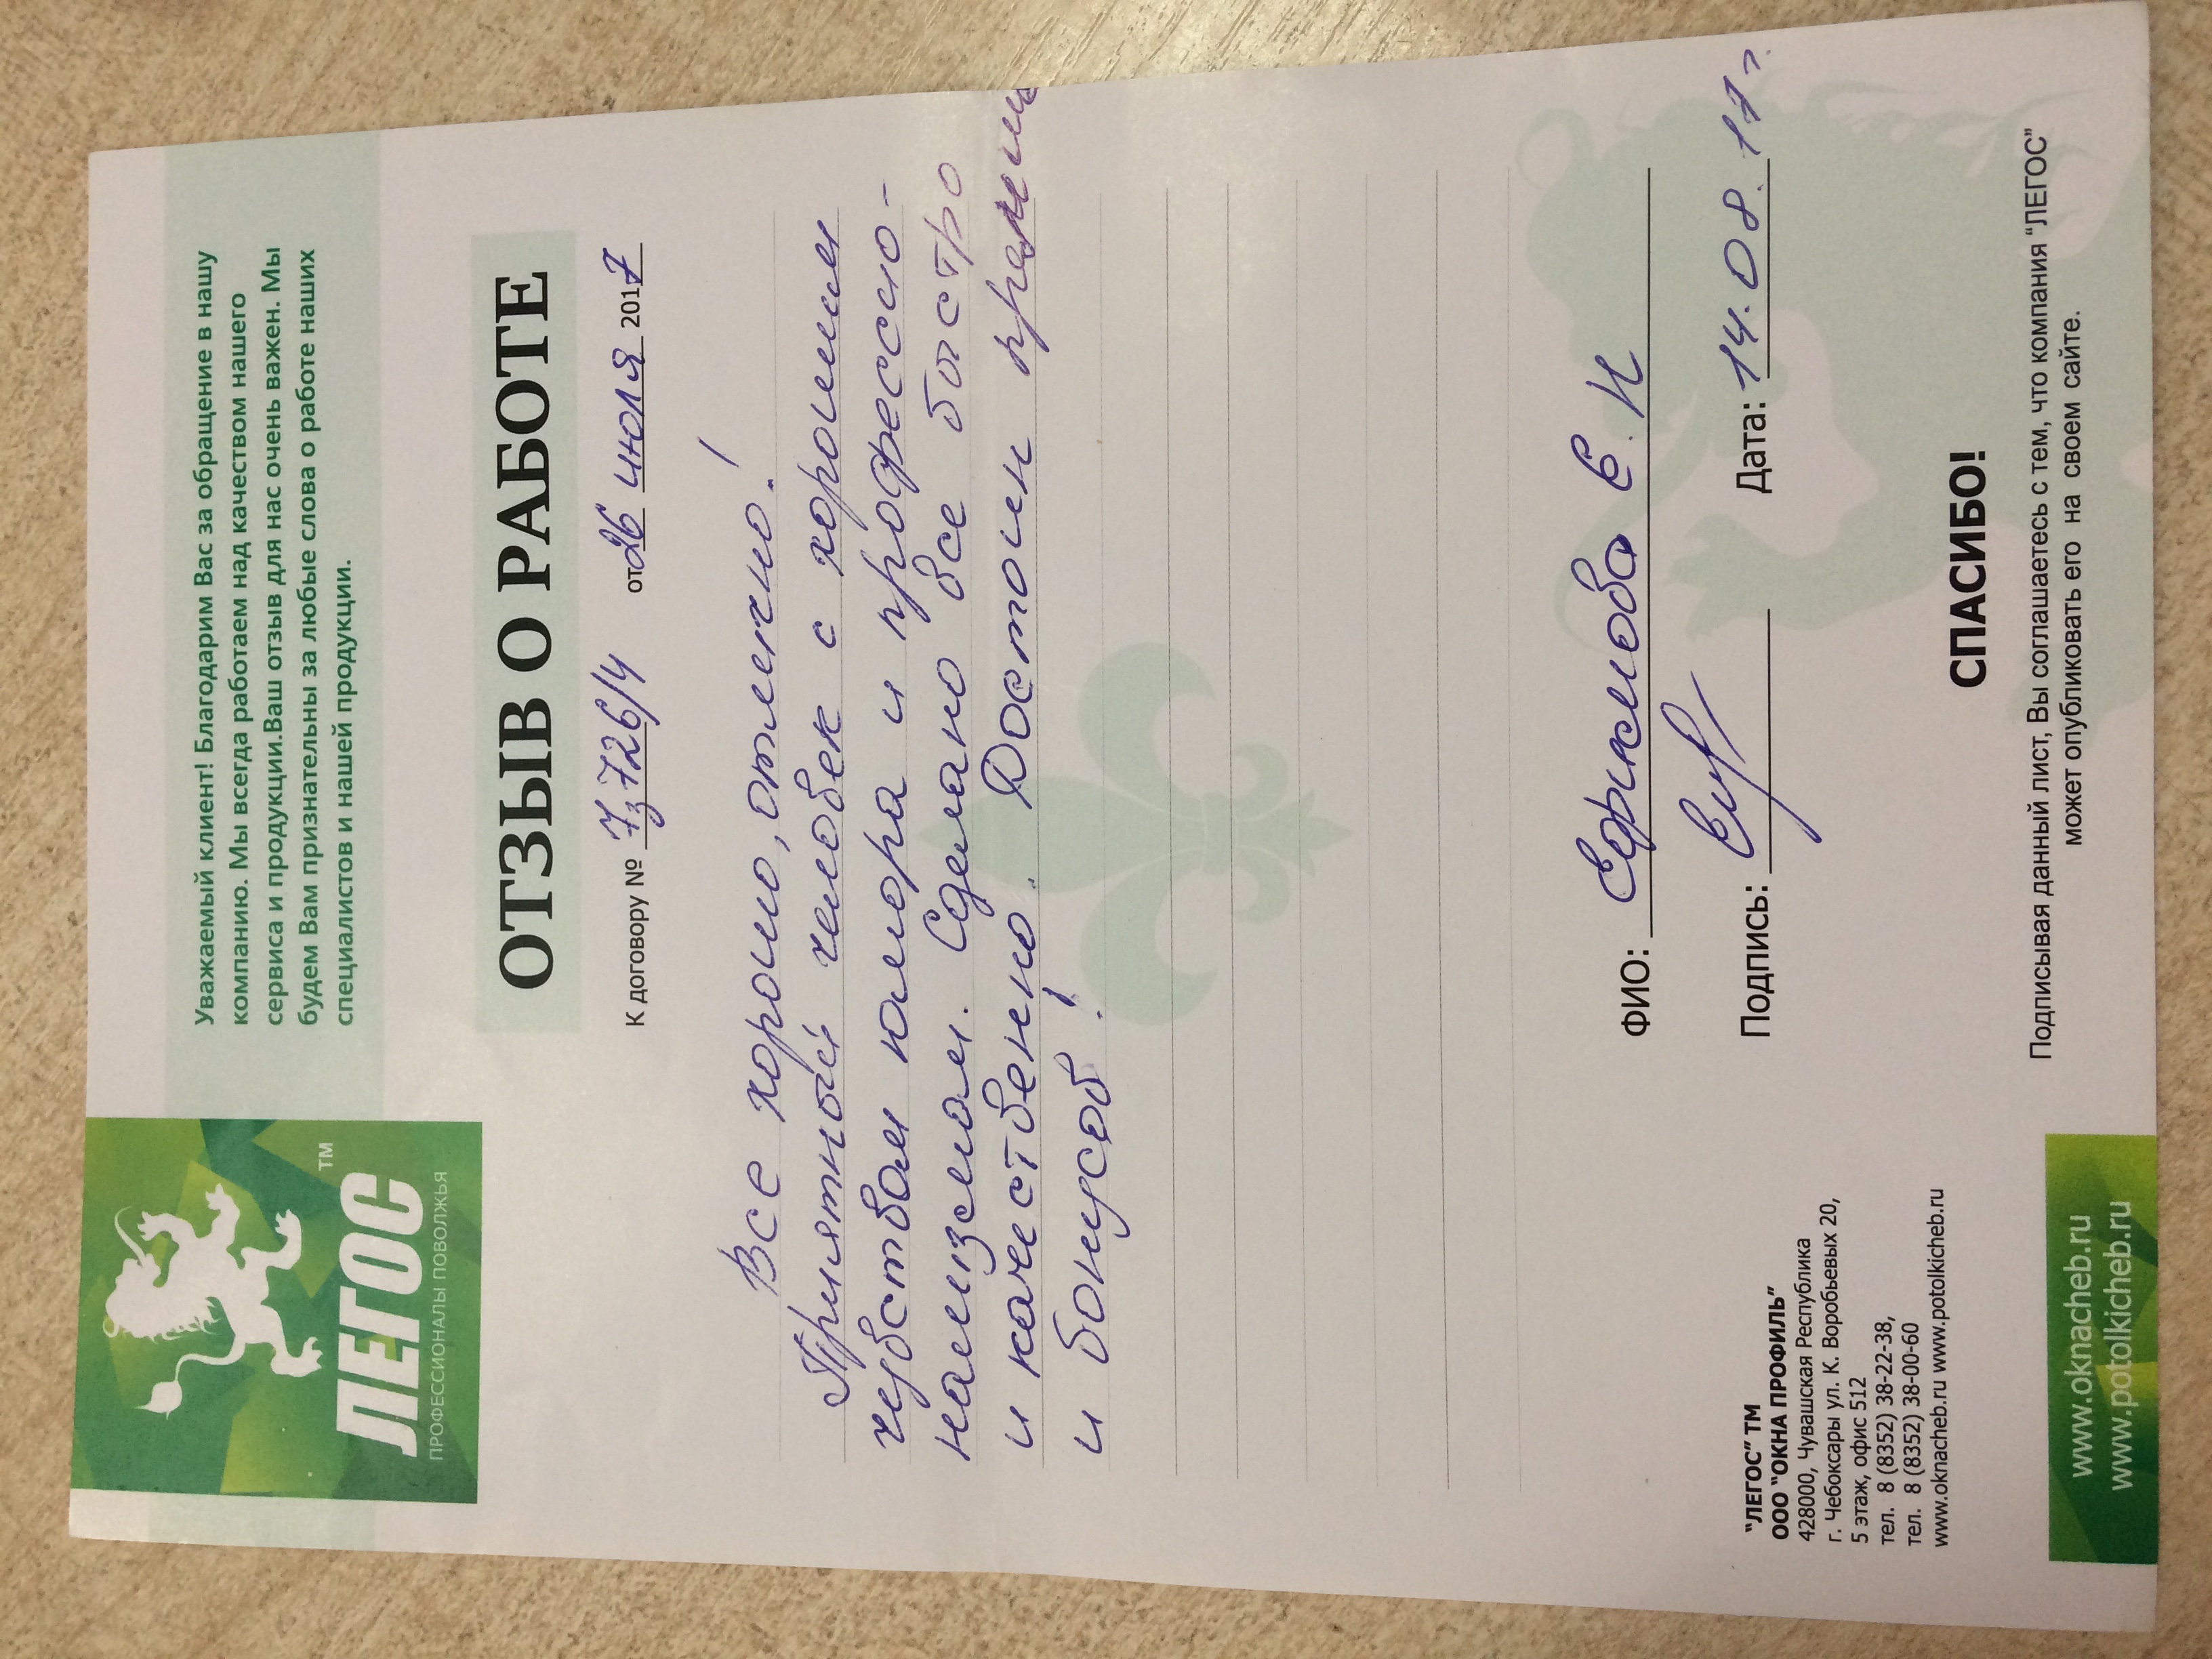 ЛЕГОС ™
ПРОФЕССИОНАЛЫ ПОВОЛЖЬЯ
Уважаемый клиент! Благодарим Вас за обращение в нашу
компанию. Мы всегда работаем над качеством нашего
сервиса и продукции.Ваш отзыв для нас очень важен. Мы
будем Вам признательны за любые слова о работе наших
специалистов и нашей продукции.
ОТЗЫВ О РАБОТЕ
К договору № 7з726/4 от 26 июля 2017
Все хорошо, отлично!
Приятный человек с хорошим
чувством юмора и профессио-
нализмом. Сделано все быстро
и качественно. Достоин премии
и бонусов!
ФИО: Ефимова Е. Н
Подпись: Дата: 14.08.17г.
"ЛЕГОС" ТМ
ООО "ОКНА ПРОФИЛЬ"
428000, Чувашская Республика
г. Чебоксары ул. К. Воробьевых 20,
5 этаж, офис 512
тел. 8 (8352) 38-22-38,
тел. 8 (8352) 38-00-60
www.oknacheb.ru www.potolkicheb.ru
СПАСИБО!
Подписывая данный лист, Вы соглашаетесь с тем, что компания "ЛЕГОС"
может опубликовать его на своем сайте.
www.oknacheb.ru
www.potolkicheb.ru